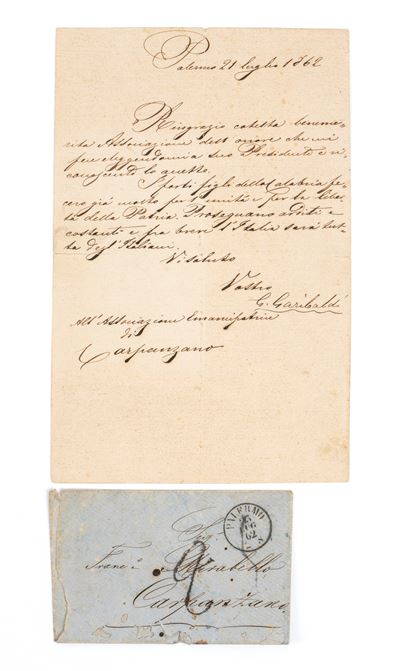 Palermo 21 luglio 1862
Ringrazio cotesta beneme-
rita Associazione dell'onore che mi
fece eleggendomi a suo Presidente e ri-
conoscente lo accetto.
I forti figli della Calabria fe-
cero già molto per l'unità e per la liber-
tà della Patria. Proseguano arditi e
costanti e fra breve l'Italia sarà tut-
ta degl'Italiani.
Vi saluto
Vostro
G. Garibaldi
All'Associazione Emancipatrice
di
Carpanzano
PALERMO
LUG
62
2
Mirabello
Carpanzano